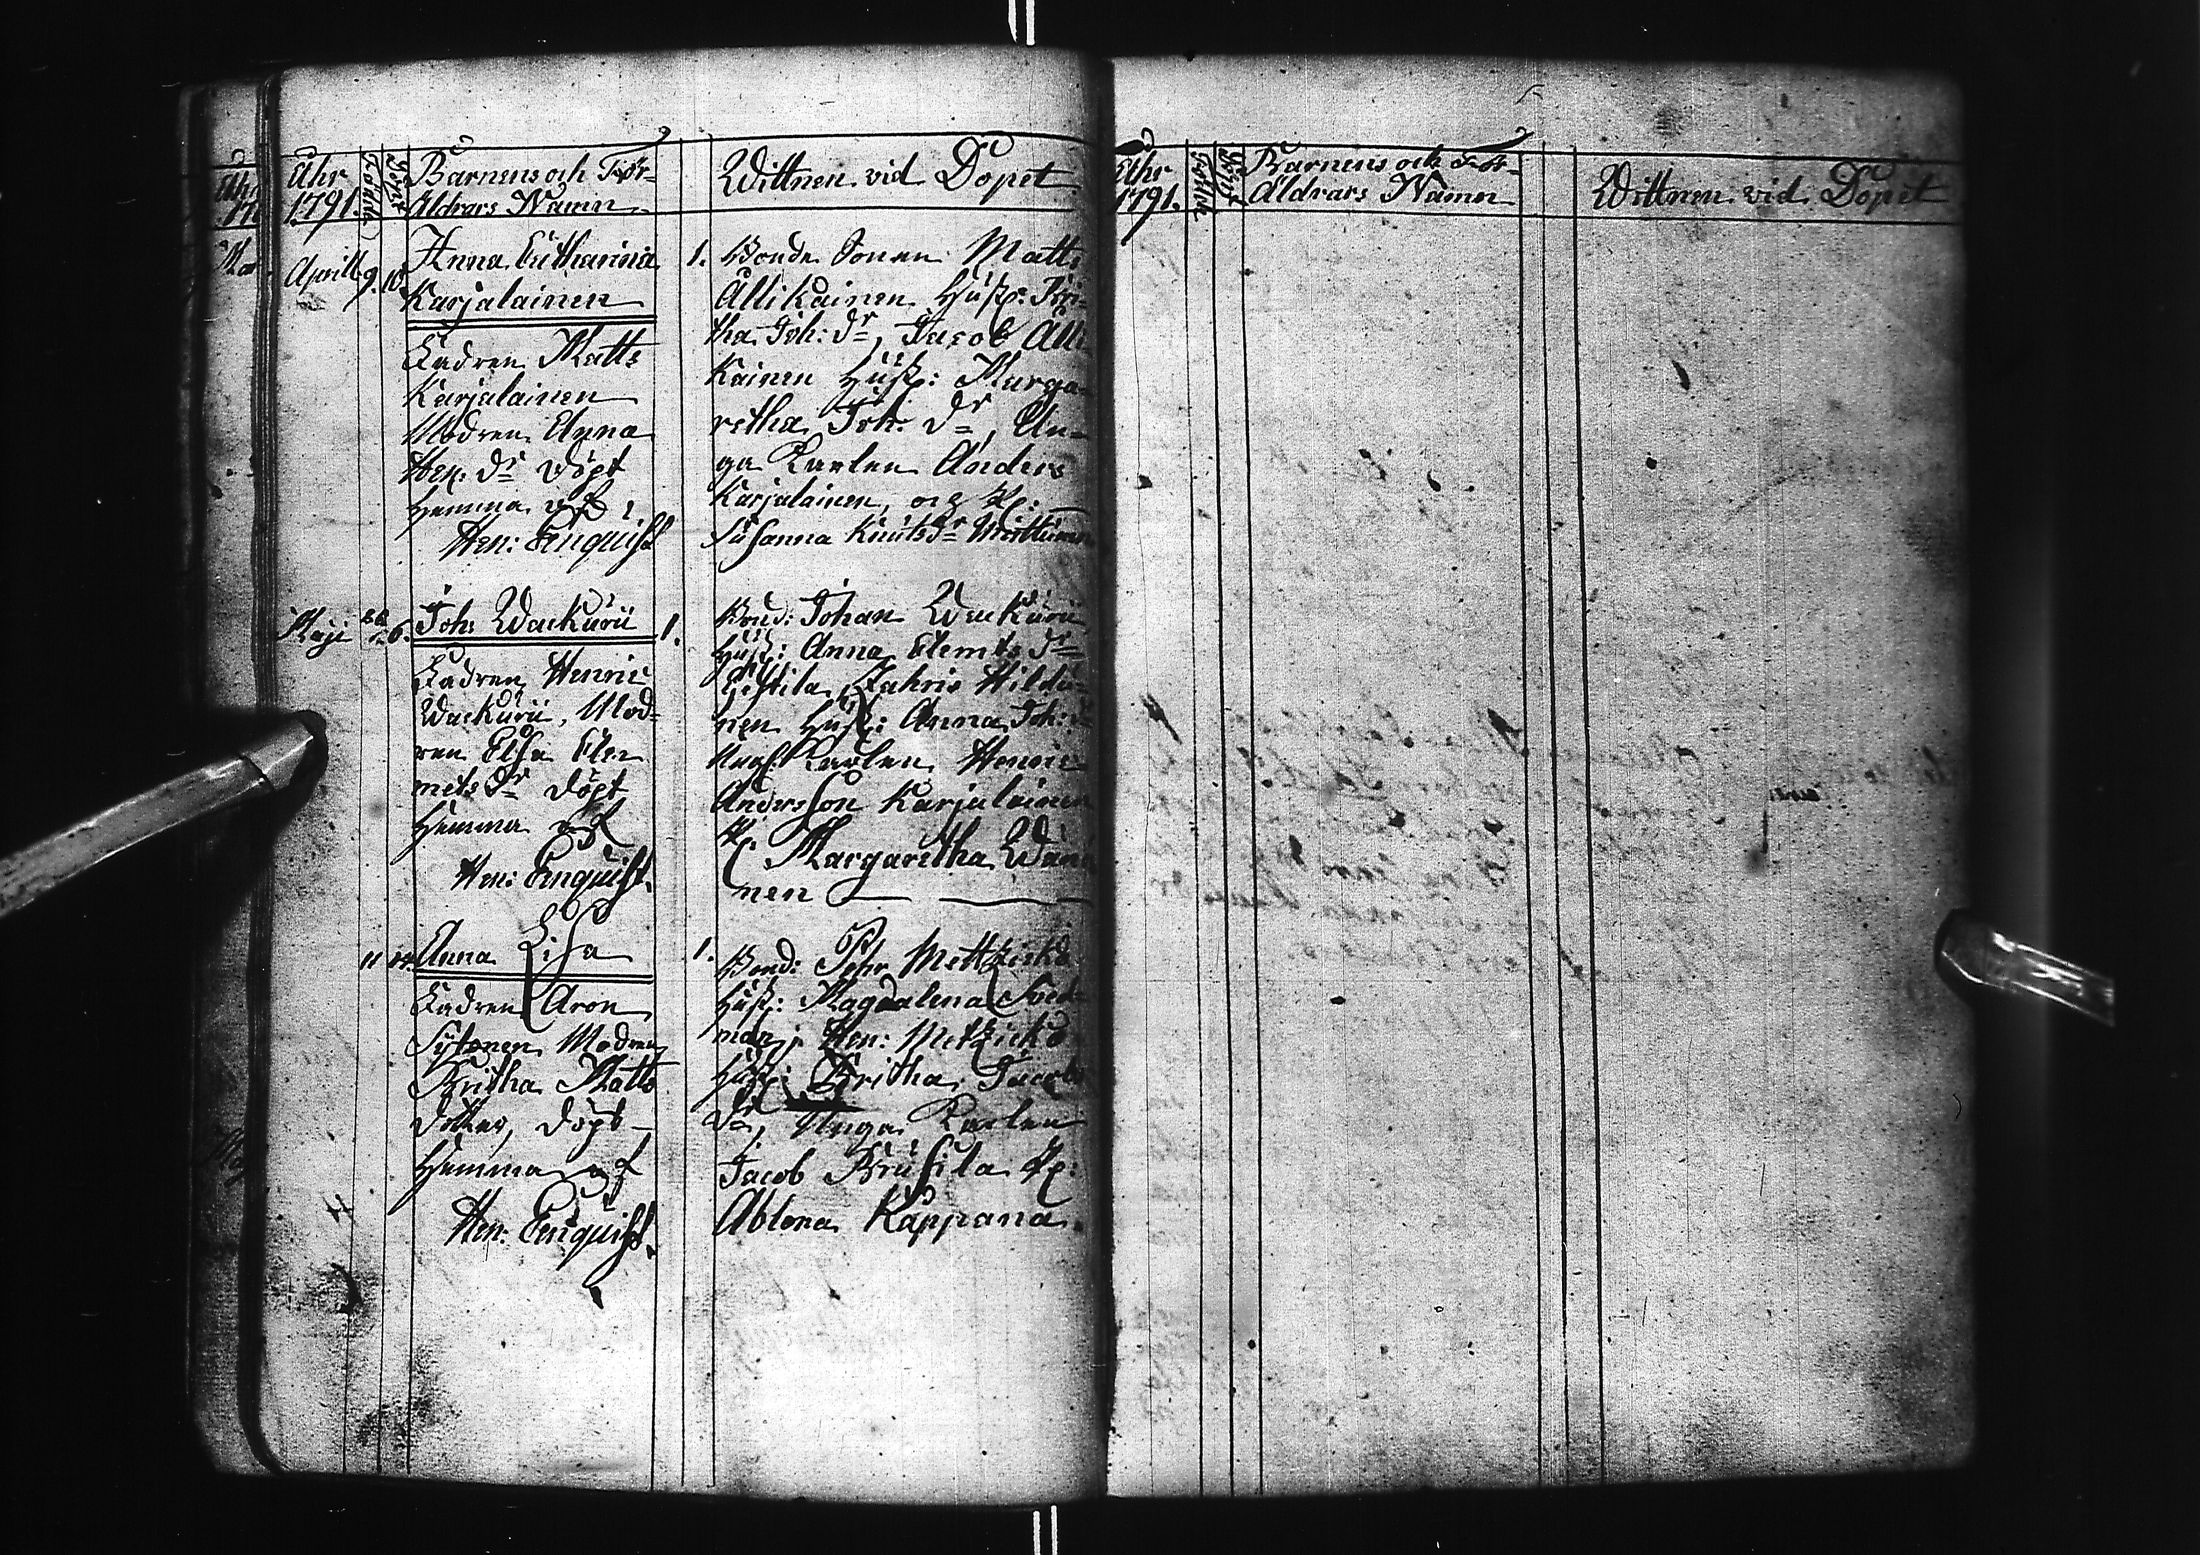 Åhr
1791.
Födde
Döpte
Barnens och För-
Äldrars Namn
Wittnen vid Dopet
Aprill
9. 10.
Anna Catharina
Karjalainen
Fadren Matts
Karjalainen
Modren Anna
Hen: dr döpt
Hemma af
Hen: Enquist
1. Bonde Sonen Matts
Ållikainen Hust: Bri-
tha Joh: dr, Jacob Ålli
kainen Hust: Marga-
retha Joh: dr, Un-
ga Karlen Anders
Karjalainen, och P:
Susanna Knuts dr
Maji
6.
Joh: Wackurü
1.
Fadren Henric
Wackurü, Mod-
ren Elsa Cle-
mets dr döpt
Hemma af
Hen: Enquist.
Bond: Johan Wackurü
Hust: Anna Clemts dr
Zahris Hildu-
nen Hust: Anna Joh: d
Ung Karlen Henric
Andersson Karjalainen
P: Margaretha
nen
11 14.
Anna Lisa
1.
Fadren Aron
Sytonen Modren
Britha Matts
dotter, döpt
Hemma af
Hen: Enquist.
Bond: Pehr
Hust: Magdalena
man, Hen:
Hust: Britha Jacobs
dr, Unga Karlen
Jacob Brusila P:
Ablona Kappana.
Åhr
1791.
Födde
Döpte
Barnens och För-
Äldrars Namn
Wittnen vid Dopet